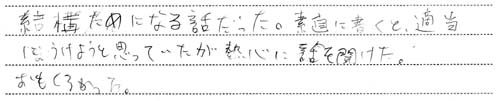 結構ためになる話だった。素直に書くと、適当
にうけようと思っていたが熱心に話を聞けた。
おもしろかった。